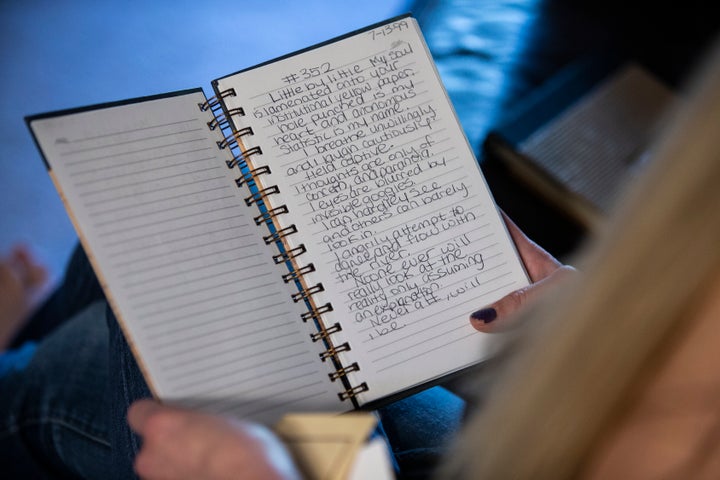 7-13-99
#352
Little by little My soul
is lamenated onto your
institutional yellow paper.
hole punched is my
heart and anonomous
Statistic is my name.
I breathe unwillingly
and I loyan cautiously?
Held captive.
Thoughts are only of
conceth, and paranoia.
I eyes are blurred by
invisible goggles.
I can hardley see
and others can barely
look in.
I angrily attempt to
dance and flow with
the river.
No one ever will
really look at the
reality only assuming
an explanation.
Never a #, will
I be.